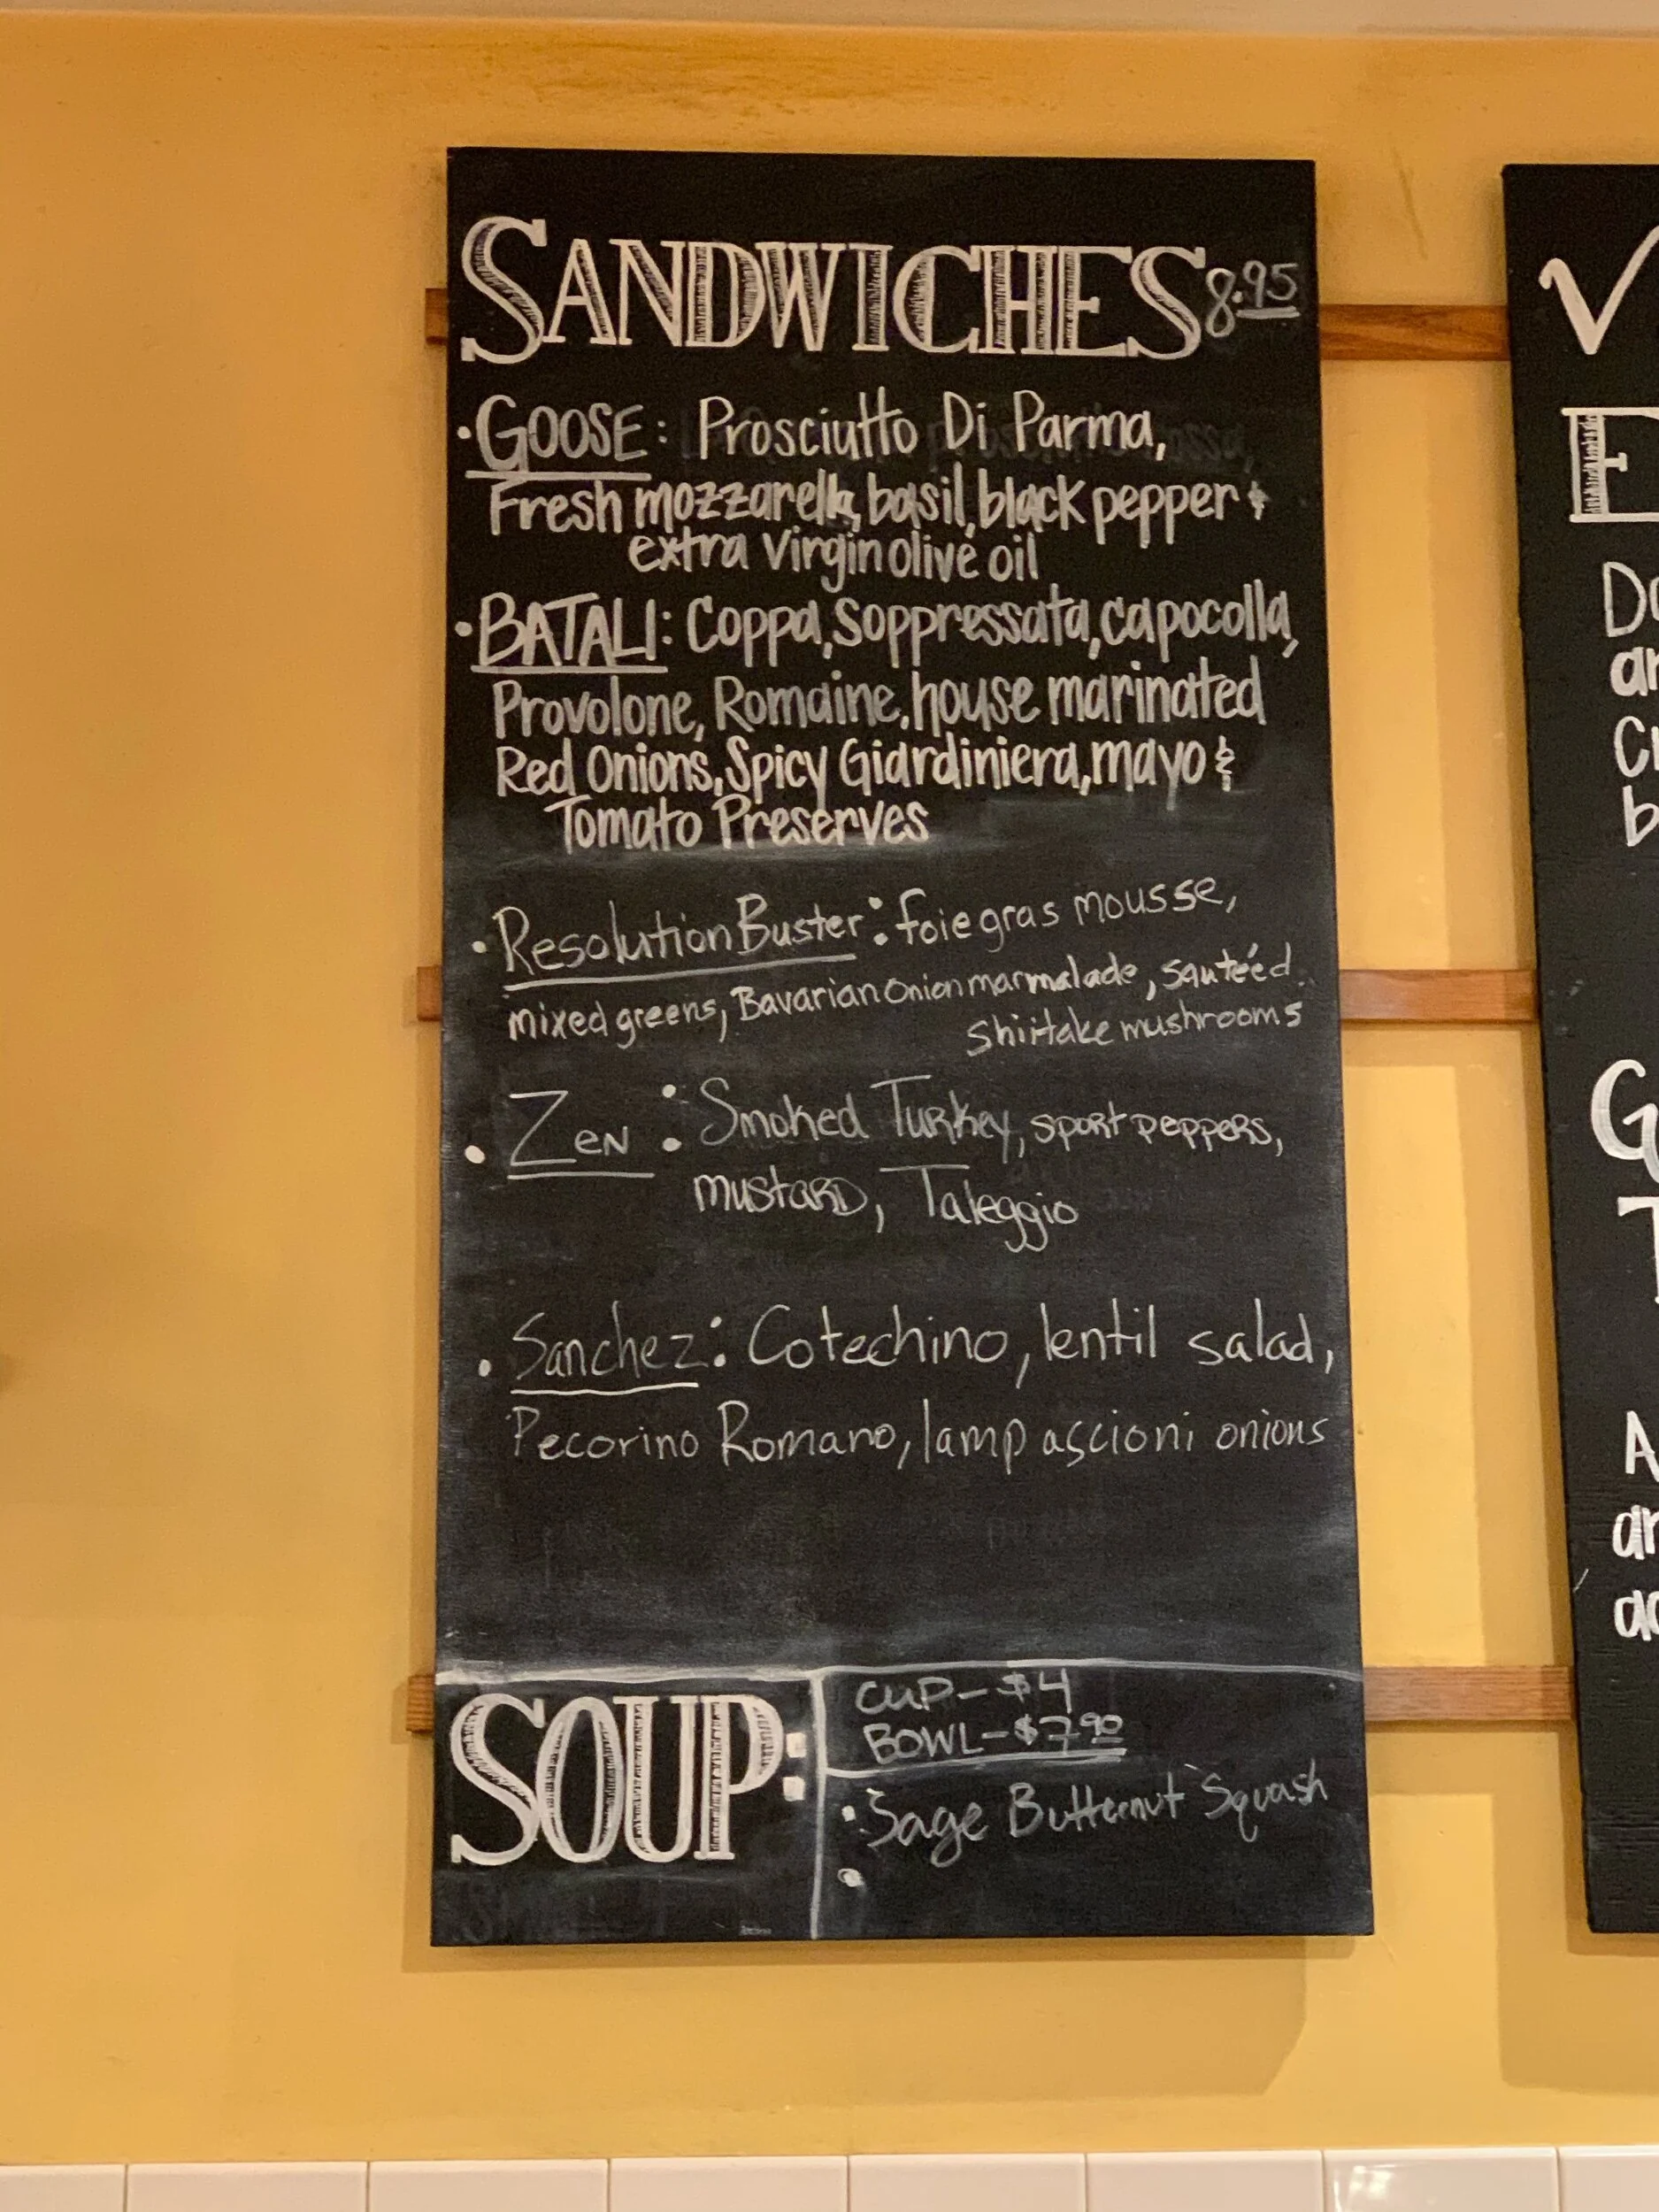 SANDWICHES 8.95
• GOOSE: Prosciutto Di Parma,
Fresh mozzarella, basil, black pepper &
extra virgin olive oil
• BATALI: Coppa, Soppressata, capocolla,
Provolone, Romaine, house marinated
Red Onions, Spicy Giardiniera, mayo &
Tomato Preserves
• Resolution Buster: foie gras mousse,
mixed greens, Bavarian Onion marmalade, sauteéd
shiitake mushrooms
• ZEN: Smoked Turkey, sport peppers,
mustard, Taleggio
• Sanchez: Cotechino, lentil salad,
Pecorino Romano, lampascioni onions
SOUP:
CUP - $4
BOWL - $7.90
• Sage Butternut Squash
•